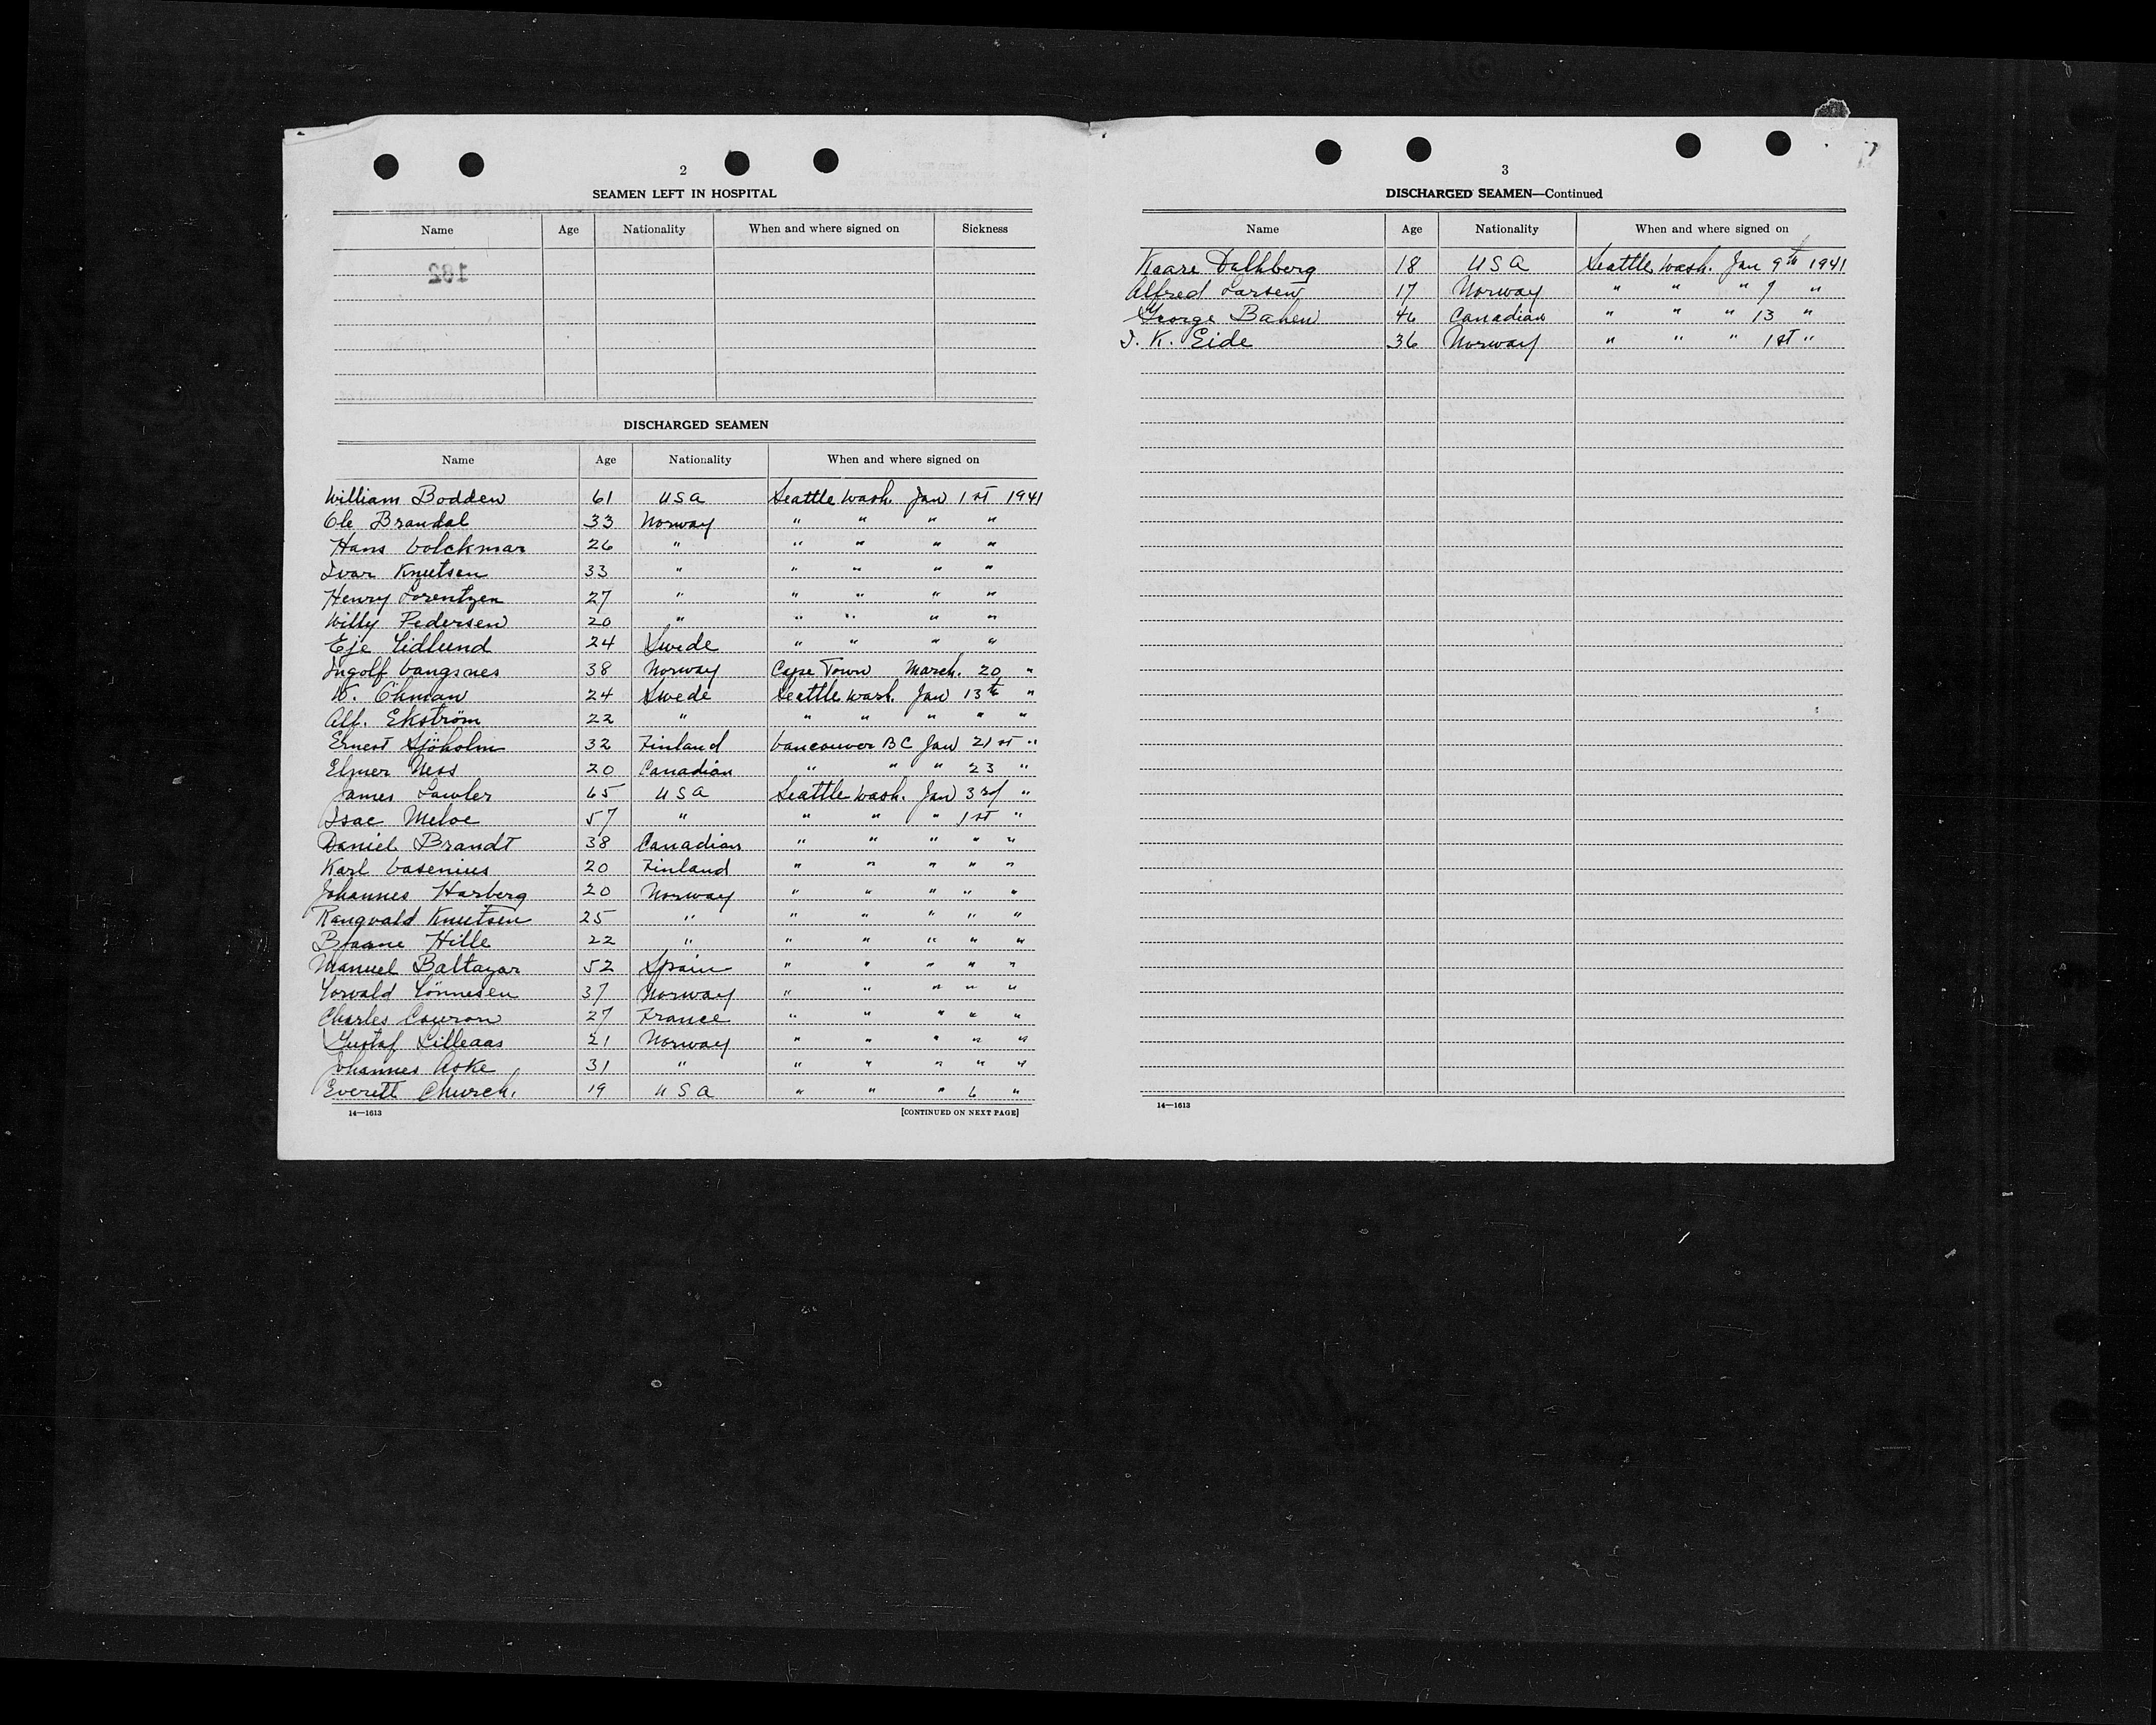 2
SEAMEN LEFT IN HOSPITAL
Name Age Nationality When and where signed on Sickness
182
DISCHARGED SEAMEN
Name Age Nationality When and where signed on
William Bodden 61 USA Seattle Wash. Jan 1st 1941
Ole Brandal 33 Norway " " " "
Hans Volckmar 26 " " " " "
Ivar Knutsen 33 " " " " "
Henry Lorentzen 27 " " " " "
Willy Pedersen 20 " " " " "
Eje Lidlund 24 Swede " " " "
Ingolf Vangsnes 38 Norway Cape Town March. 20 "
W. Öhman 24 Swede Seattle Wash. Jan 13th "
Alf. Ekström 22 " " " " " "
Ernest Sjöholm 32 Finland Vancouver BC Jan 21st "
Elmer Ness 20 Canadian " " " 23 "
James Lawler 65 USA Seattle Wash. Jan 3rd "
Isac Meloe 57 " " " " 1st "
Daniel Brandt 38 Canadian " " " " "
Karl Vasenius 20 Finland " " " " "
Johannes Harberg 20 Norway " " " " "
Rangvald Knutsen 25 " " " " " "
Hille 22 " " " " " "
Manuel Baltazar 52 Spain " " " " "
Torvald Tönnesen 37 Norway " " " " "
Charles 27 France " " " " "
Gustaf Lilleaas 21 Norway " " " " "
Johannes Aske 31 " " " " " "
Everett Church. 19 USA " " " 6 "
14—1613 [CONTINUED ON NEXT PAGE]
3
DISCHARGED SEAMEN—Continued
Name Age Nationality When and where signed on
Kaare Dalhberg 18 USA Seattle Wash. Jan 9th 1941
Alfred Larsen 17 Norway " " " 9 "
George Bahen 46 Canadian " " " 13 "
I. K. Eide 36 Norway " " " 1st "
14—1613